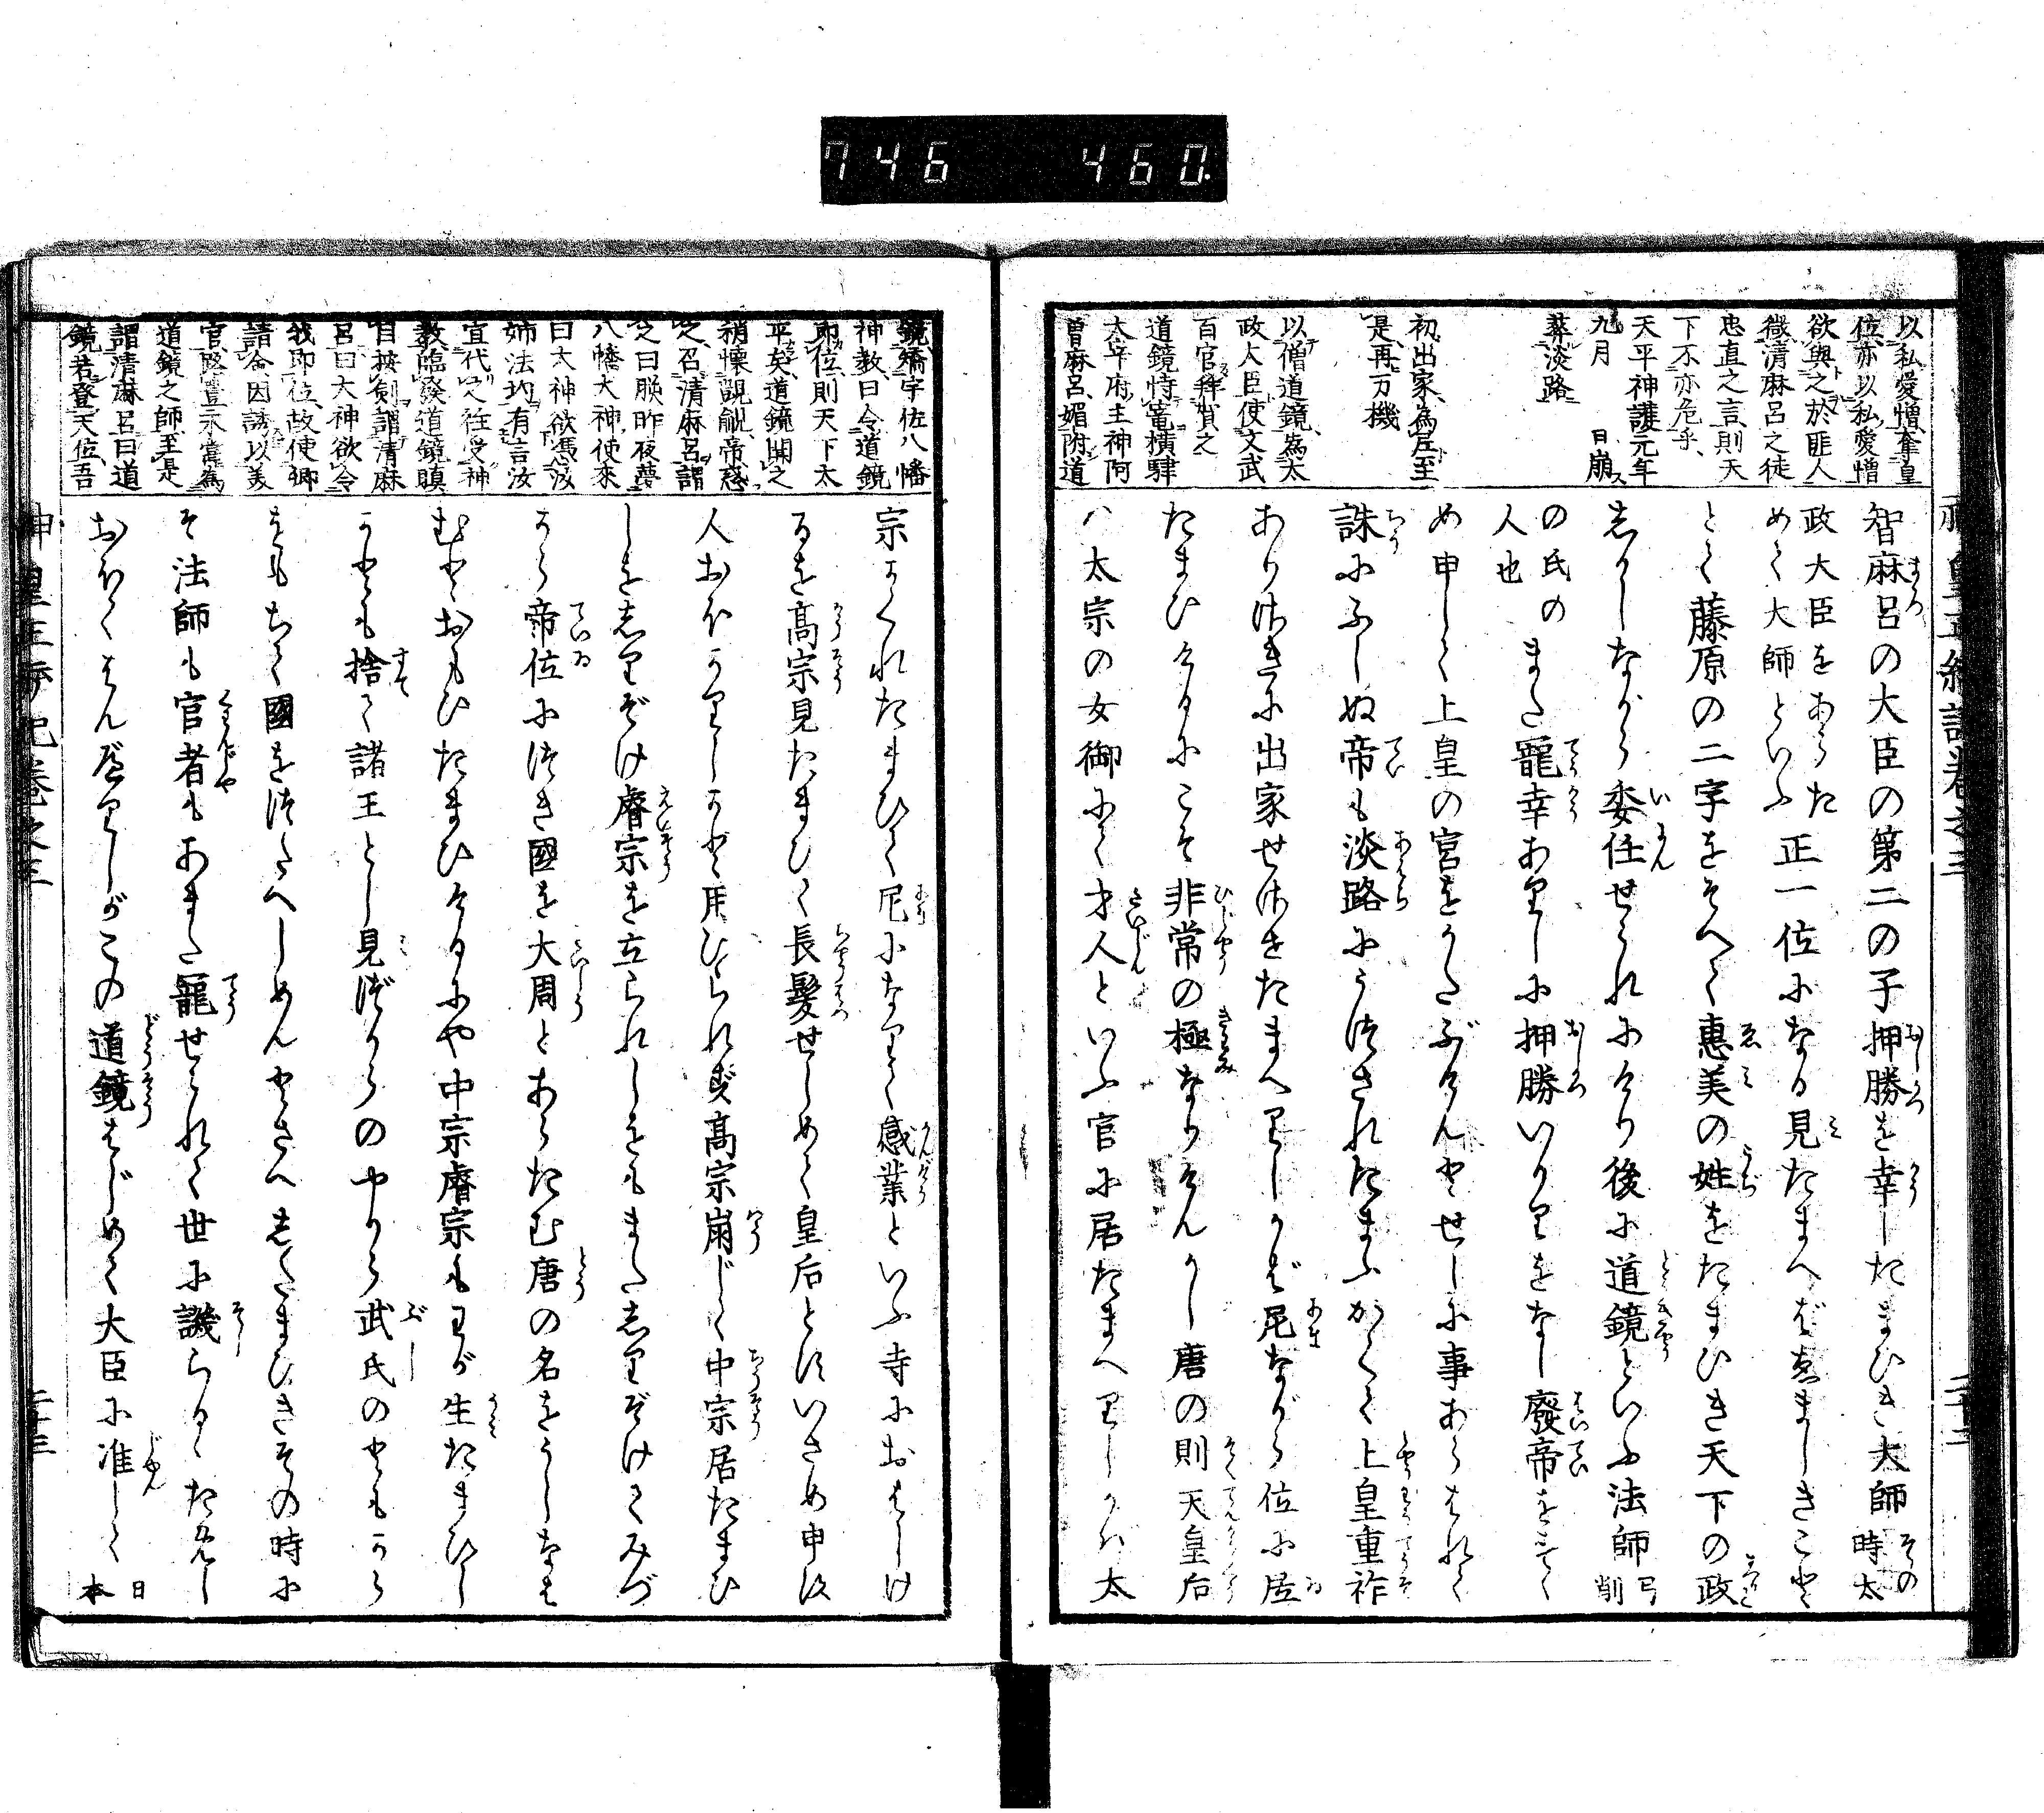 746 460.
以私愛憎奪皇
位亦以私愛憎
欲與之於匪人
微清麻呂之徒
忠直之言則天
下不亦危乎
天平神護元年
九月 日崩
葬淡路
初出家為尼至
是再万機
以僧道鏡為太
政大臣使文武
百官拜賀之
道鏡恃寵橫肆
太宰府主神阿
曽麻呂媚附道
智麻呂の大臣の第二の子押勝を幸したまひき大師その時太
政大臣をあらためて大師といふ正一位になる見たまへばゑましきこと
とて藤原の二字をそへて惠美の姓をたまひき天下の政
志かしながら委任せられにけり後に道鏡といふ法師弓削
の氏の人也また寵幸ありしに押勝いかりをなし廢帝をすゝ
め申して上皇の宮をかたぶけんとせしに事あらはれて
誅にふしぬ帝も淡路にうつされたまふかくて上皇重祚
ありさきに出家せさせたまへりしかば尼ながら位に居
たまひけるにこそ非常の極なりけんかし唐の則天皇后
ハ太宗の女御にて才人といふ官に居たまへりしかバ太
鏡矯宇佐八幡
神教曰令道鏡
即位則天下太
平矣道鏡聞之
稍懷覬覦帝惑
之召清麻呂謂
之曰朕昨夜夢
八幡大神使來
曰大神欲憑汝
姉法均有言汝
宜代之往受神
教臨發道鏡瞋
目按剣謂清麻
呂曰大神欲令
我即位故使卿
請命因誘以美
官路豊永嘗為
道鏡之師至是
謂清麻呂曰道
鏡若登天位吾
宗かくれたまひて尼になりて感業といふ寺におはしけ
るを高宗見たまひて長髪せしめて皇后とすいさめ申す
人おほかりしかど用ひられず高宗崩じて中宗居たまひ
しを志りぞけ睿宗を立られしをもまた志りぞけてみづ
から帝位につき國を大周とあらたむ唐の名をうしなは
むとおもひたまひけるにや中宗睿宗もわが生たまひし
かども捨て諸王とし見づからのやから武氏のともから
をもちて國をつたへしめんとさへ志たまひきその時に
そ法師も官者もあまた寵せられて世に譏らるゝためし
おほくはんべりしがこの道鏡はじめて大臣に准して日本